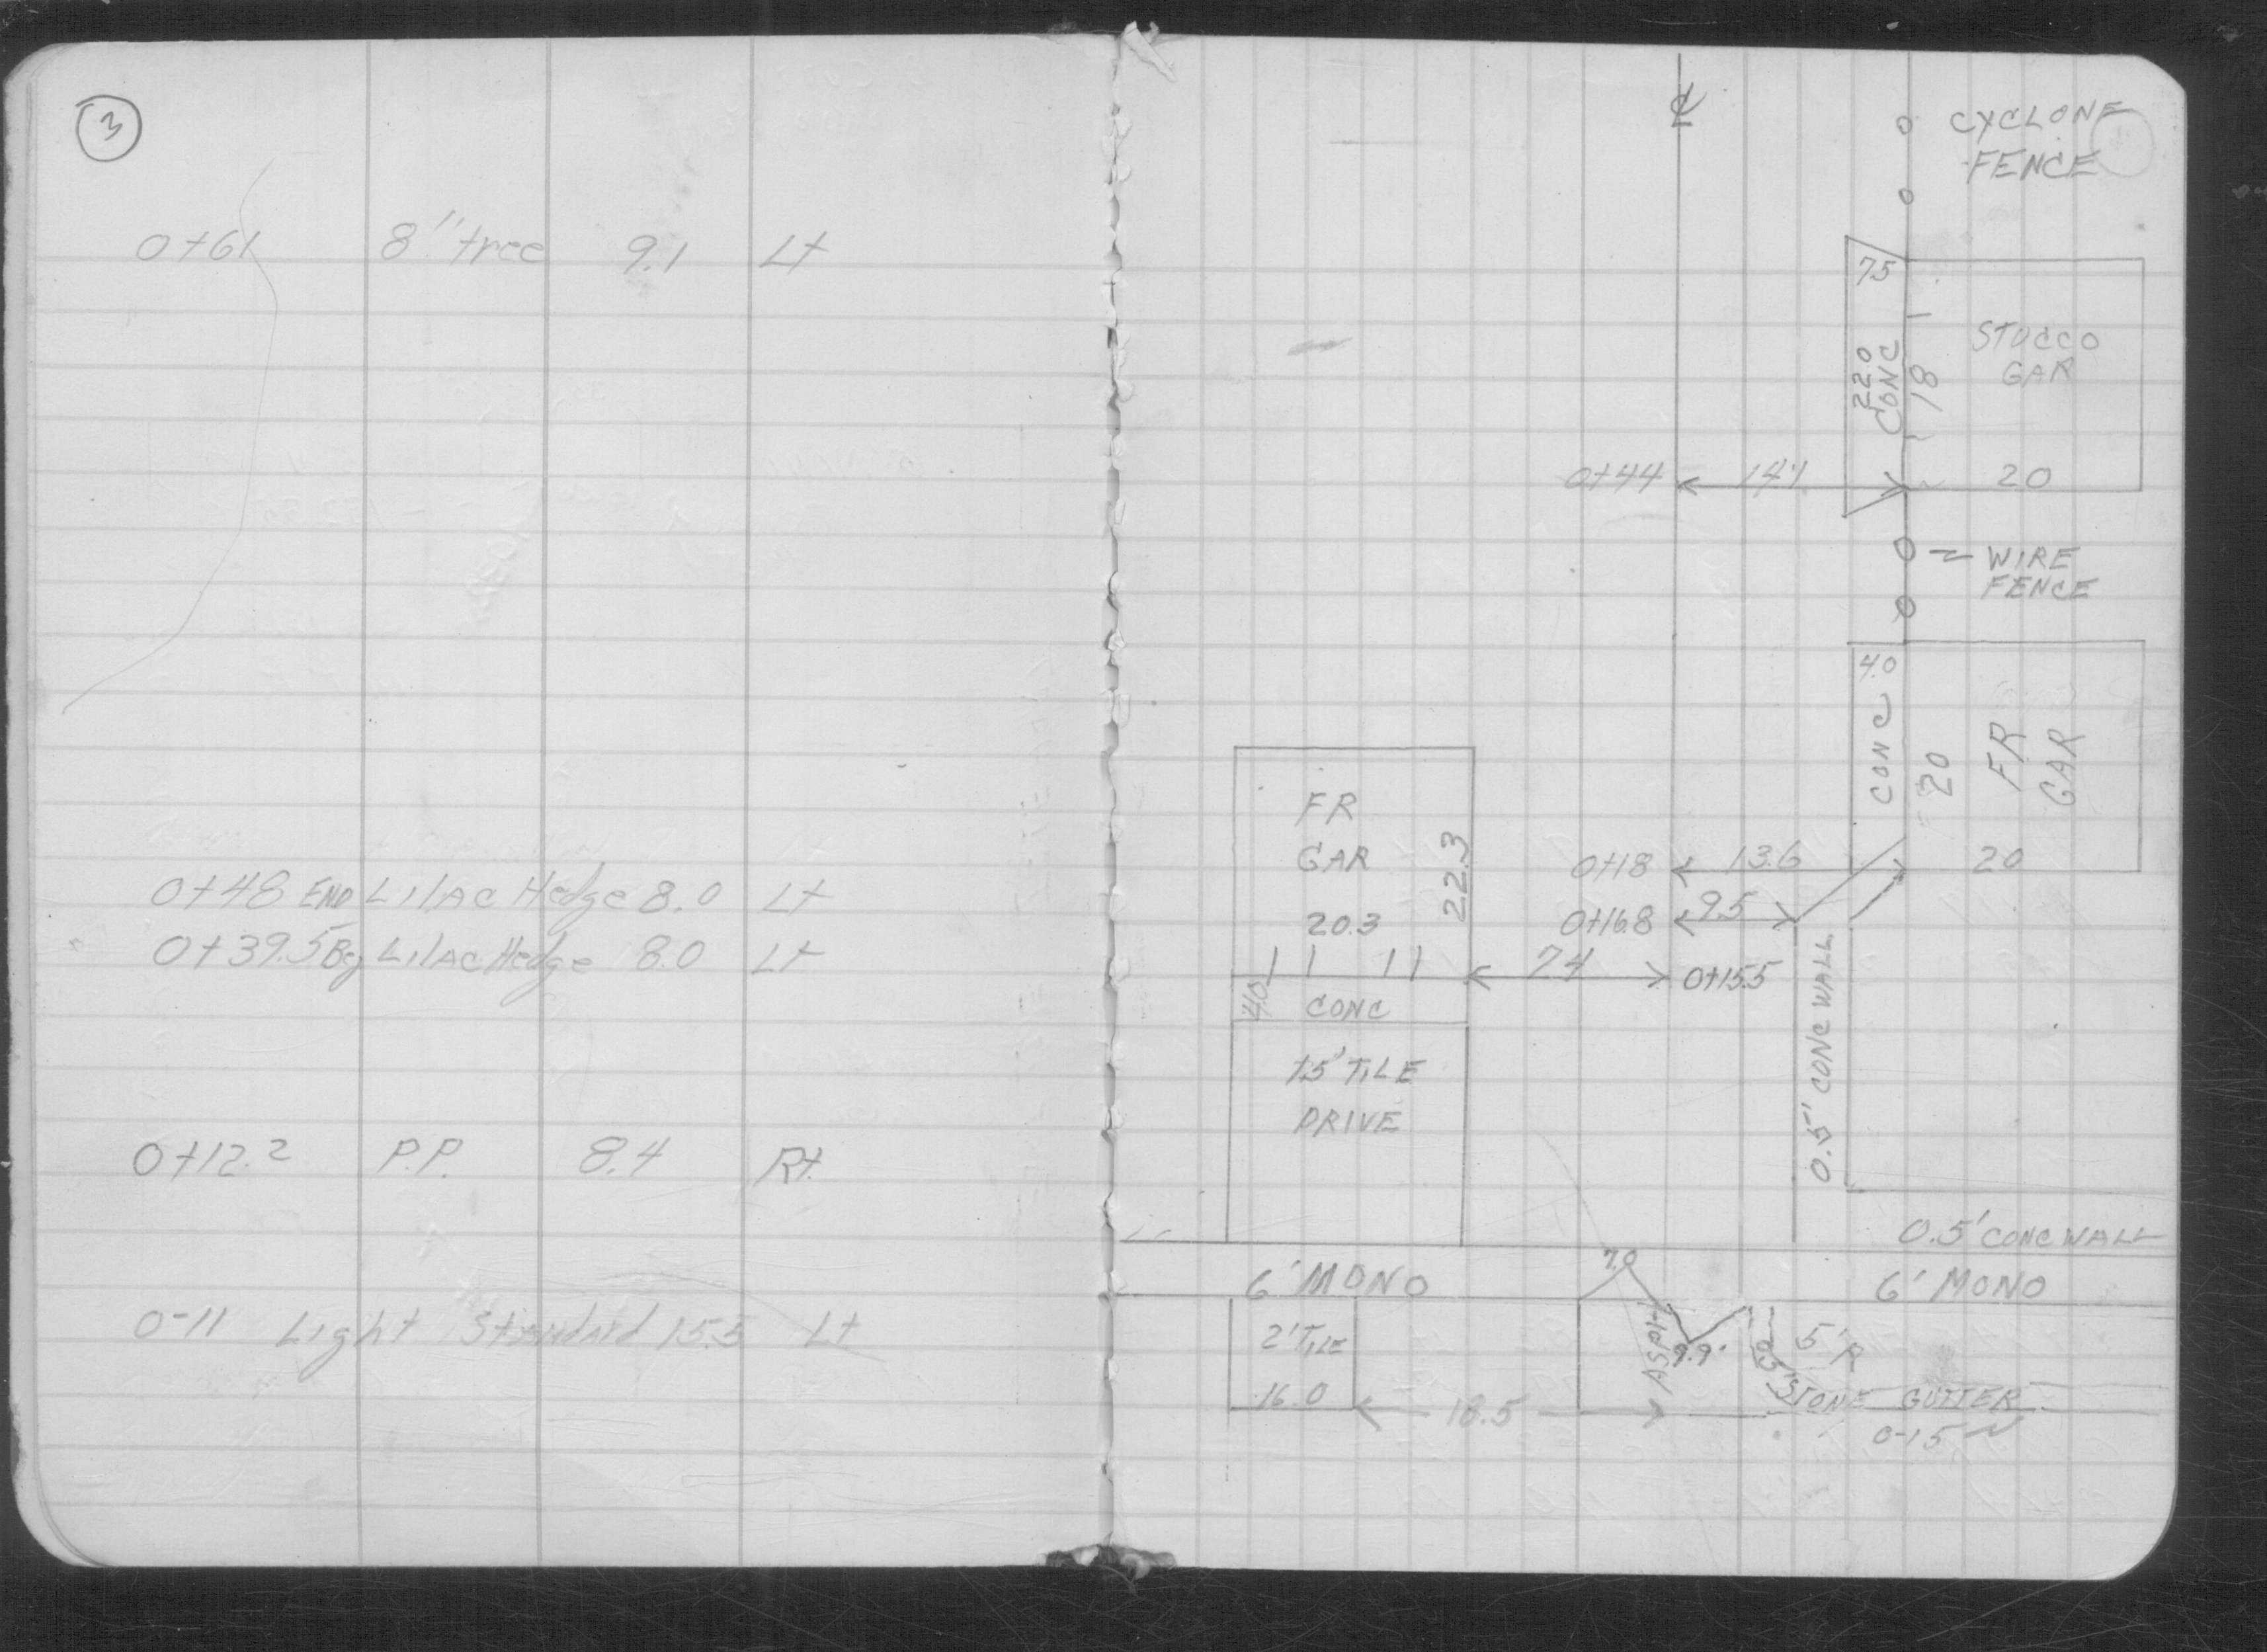 3
0+61 8" tree 9.1 Lt
0+48 END Lilac Hedge 8.0 Lt
0+39.5 Beg Lilac Hedge 8.0 Lt
0+12.2 P.P. 8.4 Rt.
0-11 Light Standard 15.5 Lt
CYCLONE
FENCE
7.5
22.0
CONC
18
STUCCO
GAR
20
0+44 14.1
WIRE
FENCE
4.0
CONC
20
FR
GAR
20
FR
GAR
20.3
22.3
0+18 13.6
0+16.8 9.5
7.4 0+15.5
4.0 CONC
7.5' TILE
DRIVE
0.5' CONC WALL
0.5' CONC WALL
6' MONO
7.0
6' MONO
2' TILE
16.0
18.5
ASPH
9.9'
5' R
STONE GUTTER
0-15